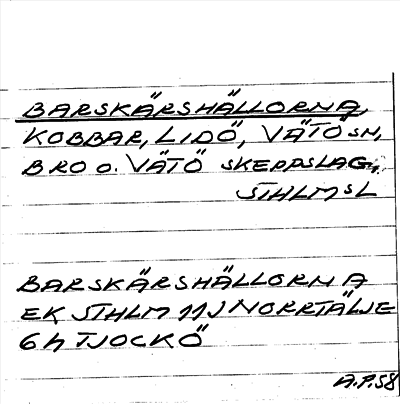 BARSKÄRSHÄLLORNA,
KOBBAR, LIDÖ, VÄTÖ SN,
BRO O. VÄTÖ SKEPPSLAG,
STHLMS L
BARSKÄRSHÄLLORNA
EK STHLM 11J NORRTÄLJE
6h TJOCKÖ
A.P.58